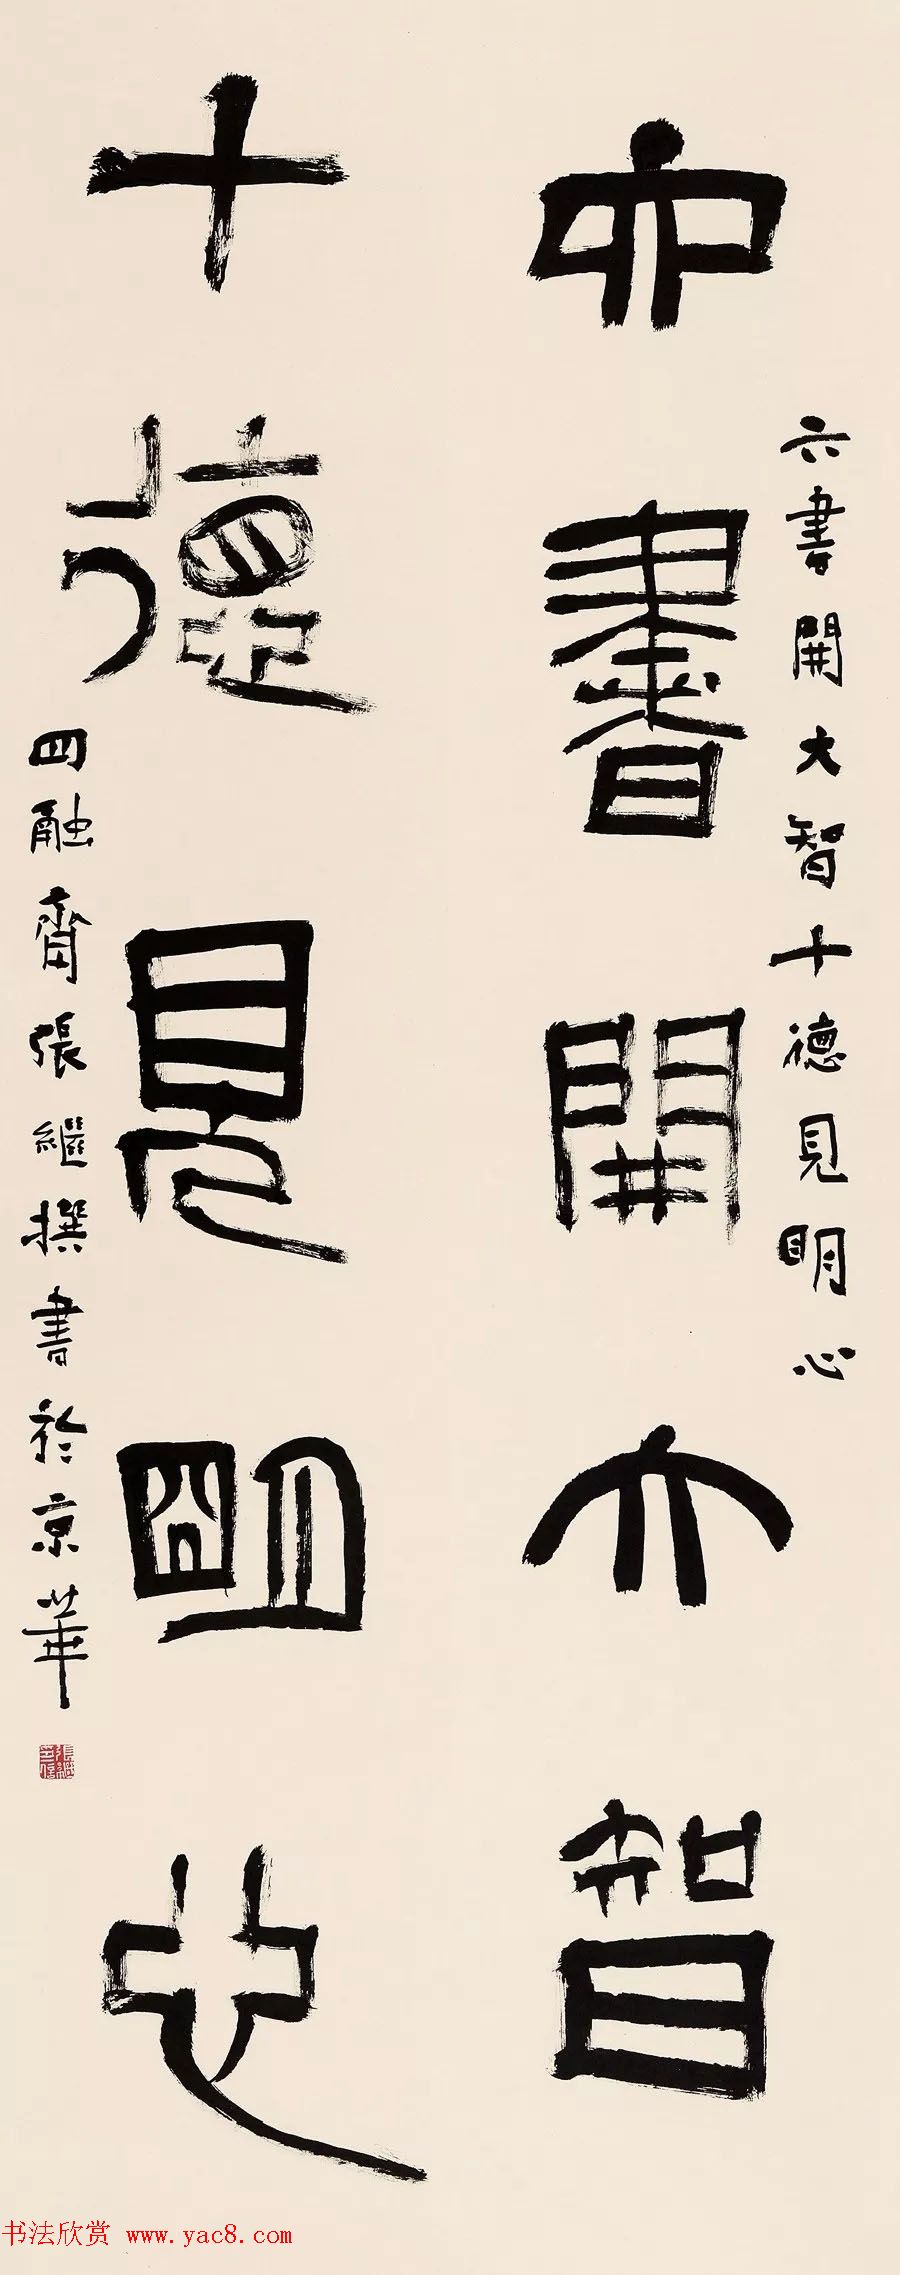 六書開大智
六書開大智十德見明心
十德見明心
四融齋張繼撰書於京華
張繼之信
书法欣赏 www.yac8.com